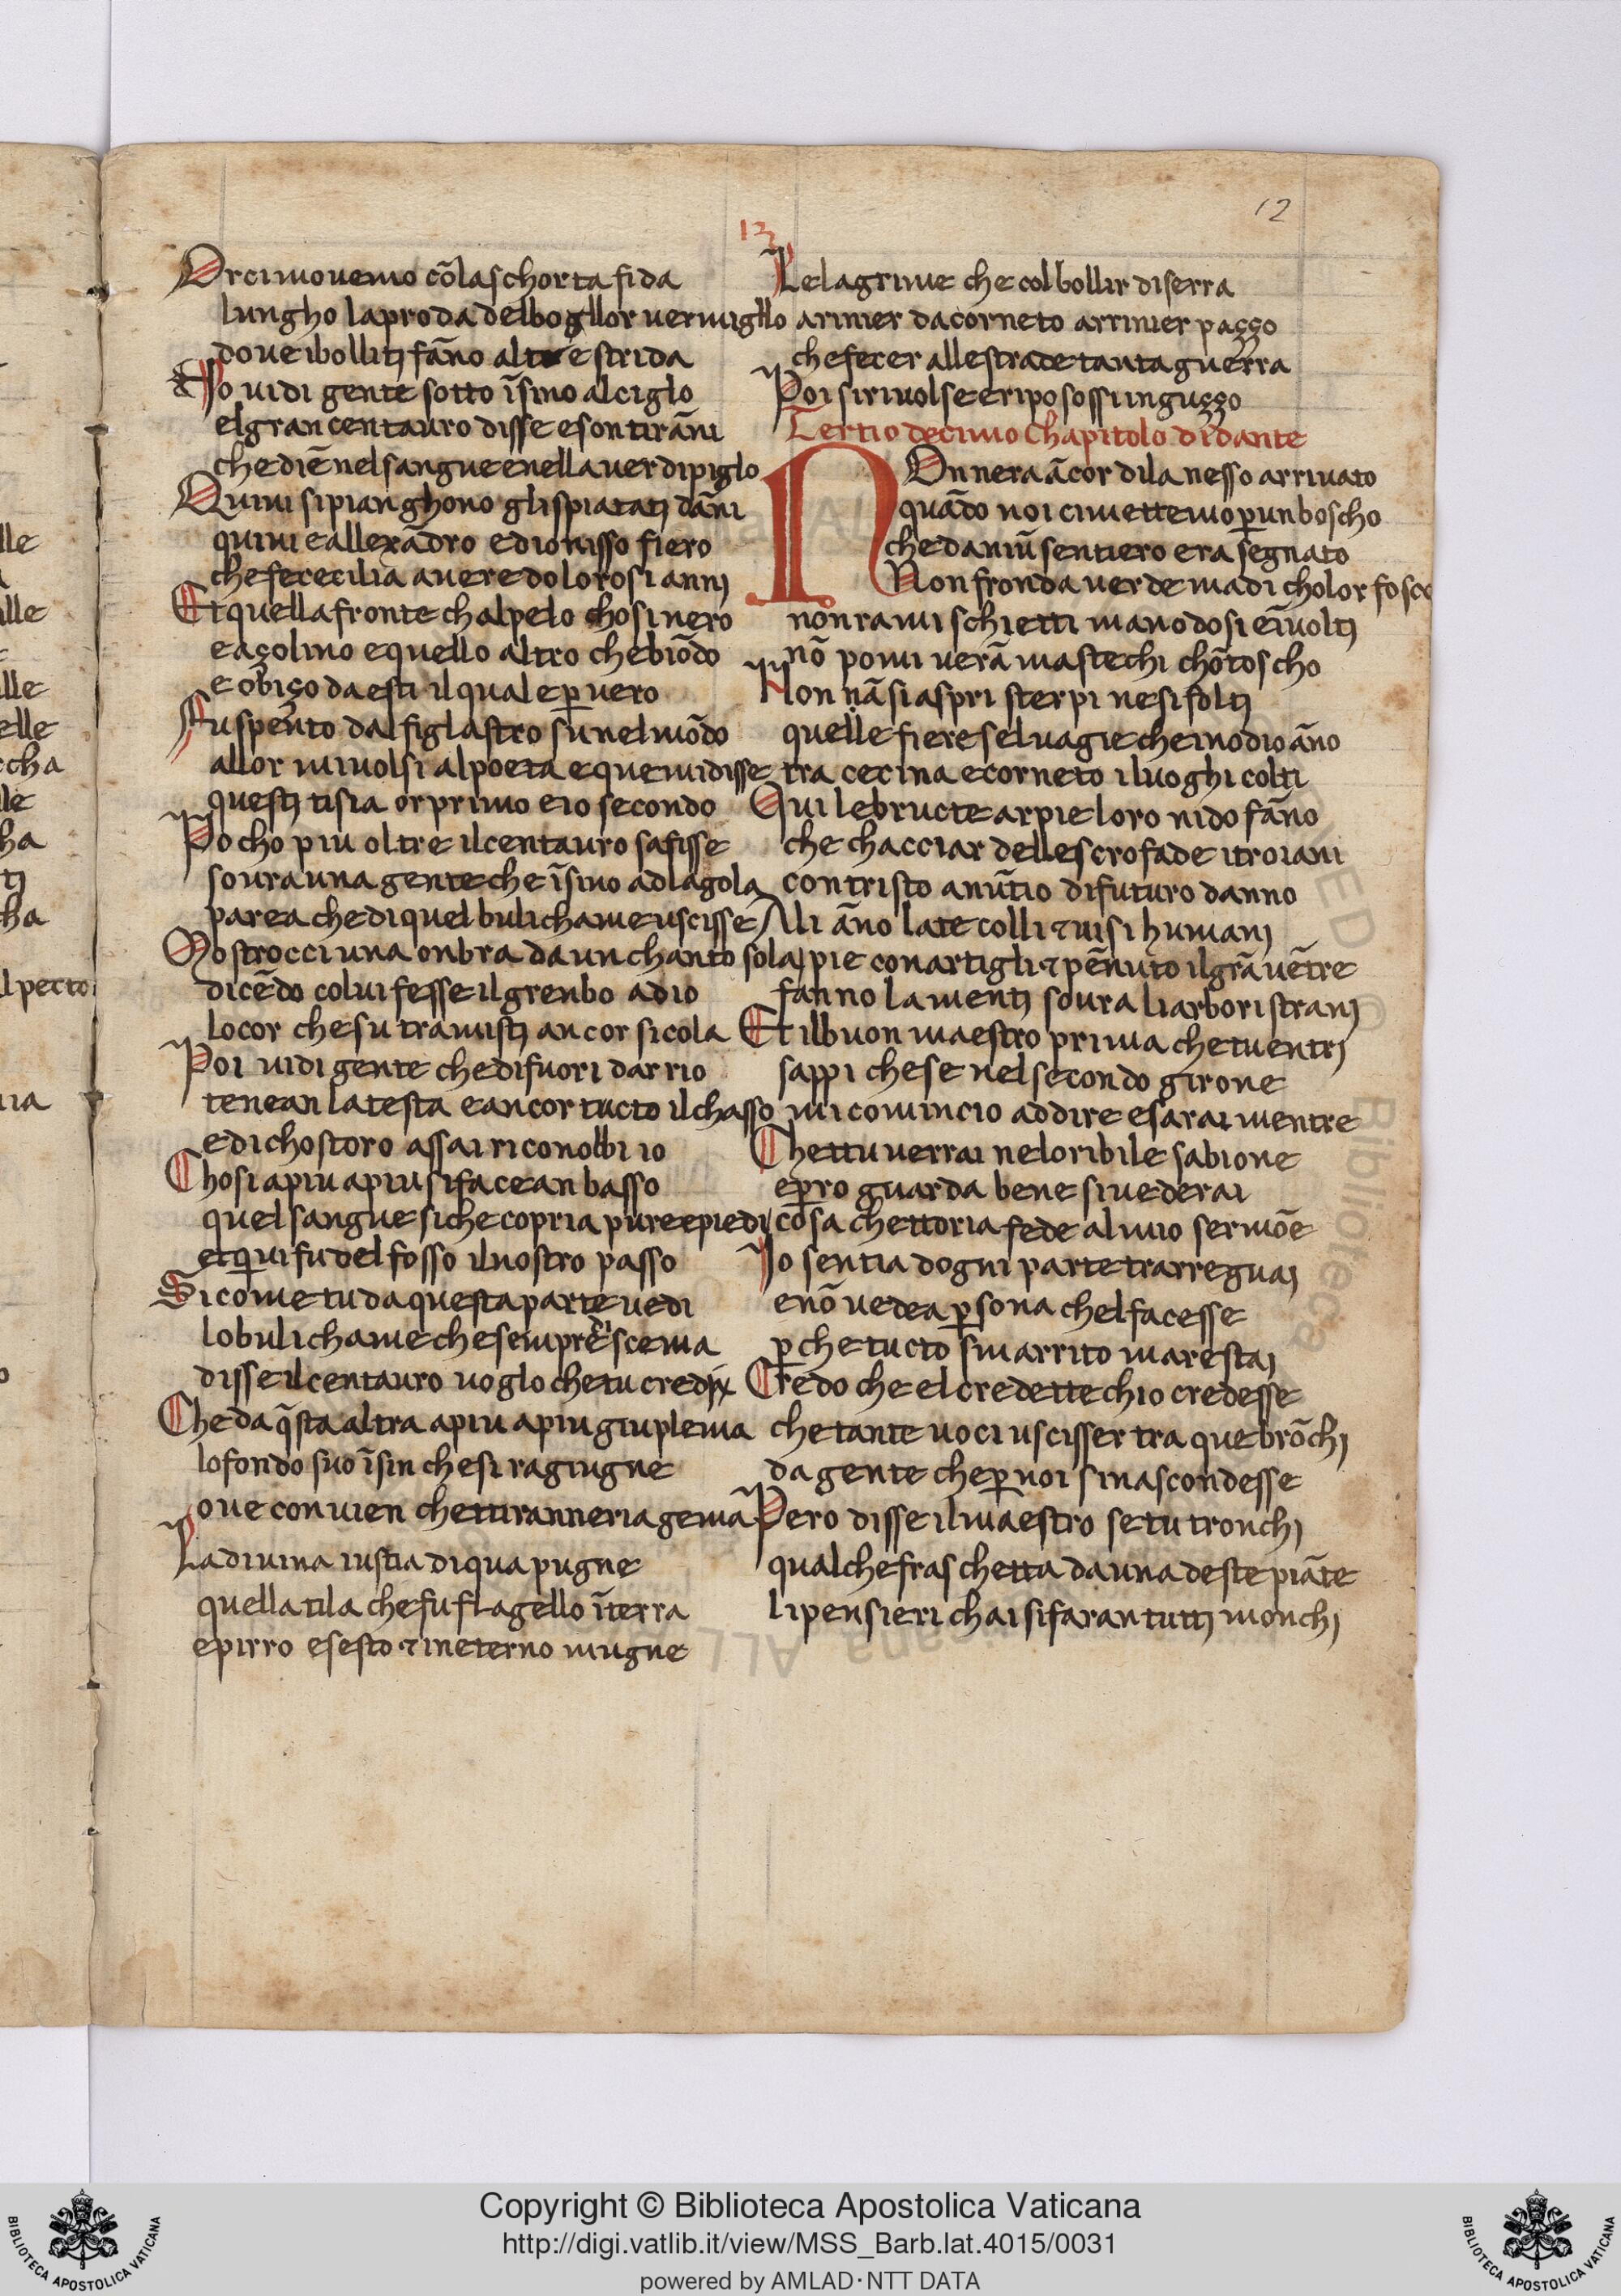 12
13
Orci movemo cōla schorta fida
lungho la proda del bogllor vermigllo
dove i bolliti fāno alte strida
Io vidi gente sotto īsino al ciglo
el gran centauro disse e son tirāni
che diē nel sangue e nell aver di piglo
Quivi si pianghono gli spiatati dāni
quivi e allexādro e dionisso fiero
che fe cecilia avere dolorosi anni
Et quella fronte ch al pelo chosi nero
e açolino e quello altro che biōdo
e obiço da esti il quale per vero
Fu spento dal figlastro su nel mōdo
allor mi volsi al poeta e que mi disse
questi ti sia or primo e io secondo
Pocho piu oltre il centauro s afisse
soura una gente che īsino ad la gola
parea che di quel bulichame uscisse
Mostrocci una onbra da un chanto sola
dicēdo colui fesse il grenbo a dio
lo cor che su tramisti ancor si cola
Poi vidi gente che di fuori dar rio
tenean la testa e ancor tucto il chasso
e di chostoro assai riconobbi io
Chosi a piu a piu si facean basso
quel sangue si che copria pur e piedi
et qui fu del fosso il nostro passo
Si come tu da questa parte vedi
lo bulichame che sempre di scema
disse il centauro voglo che tu credi
Che da q̄sta altra a piu a piu giu plema
lo fondo suo īsin che si ragiugne
ove convien chettiranneria gema
La divina iustia di qua pugne
quell atila che fu flagello ī terra
e pirro e sesto et in eterno mugne
Le lagrime che col bollir diserra
a rinier da corneto a rrinier paçço
che fecer alle strade tanta guerra
Poi si rivolse e ripossossi in guçço
Tertio decimo Chapitolo di dante
NOnn era ācor di la nesso arrivato
quādo noi ci mettemo per un boscho
che da niū sentiero era segnato
Non fronda verde ma di cholor fosco
non rami schietti ma nodosi e īvolti
nō pomi v erā ma stechi chō toscho
Non nā si aspri sterpi ne si folti
quelle fiere selvagie che in odio āno
tra cecina e corneto i luoghi colti
Qui le bructe arpie loro nido fāno
che chacciar delle scrofade i troiani
con tristo anūtio di futuro danno
Ali āno late colli et visi humani
pie con artigli et pēnuto il grā vētre
fanno lamenti soura li arbori strani
Et il buon maestro prima che tu entri
sappi che se nel secondo girone
mi comincio ad dire e sarai mentre
Chettu verrai nel oribile sabione
e pero guarda bene si vederai
cosa chettoria fede al mio sermōe
Io sentia d ogni parte trarre guai
e nō vedea persona che l facesse
per che tucto smarrito m arestai
Credo che el credette ch io credesse
che tante voci uscisser tra que brōchi
da gente che per noi si nascondesse
Pero disse il maestro se tu tronchi
qualche fraschetta d una d este piāte
li pensieri ch ai si faran tutti monchi
Copyright © Biblioteca Apostolica Vaticana
http://digi.vatlib.it/view/MSS_Barb.lat.4015/0031
powered by AMLAD·NTT DATA
BIBLIOTECA APOSTOLICA VATICANA
BIBLIOTECA APOSTOLICA VATICANA